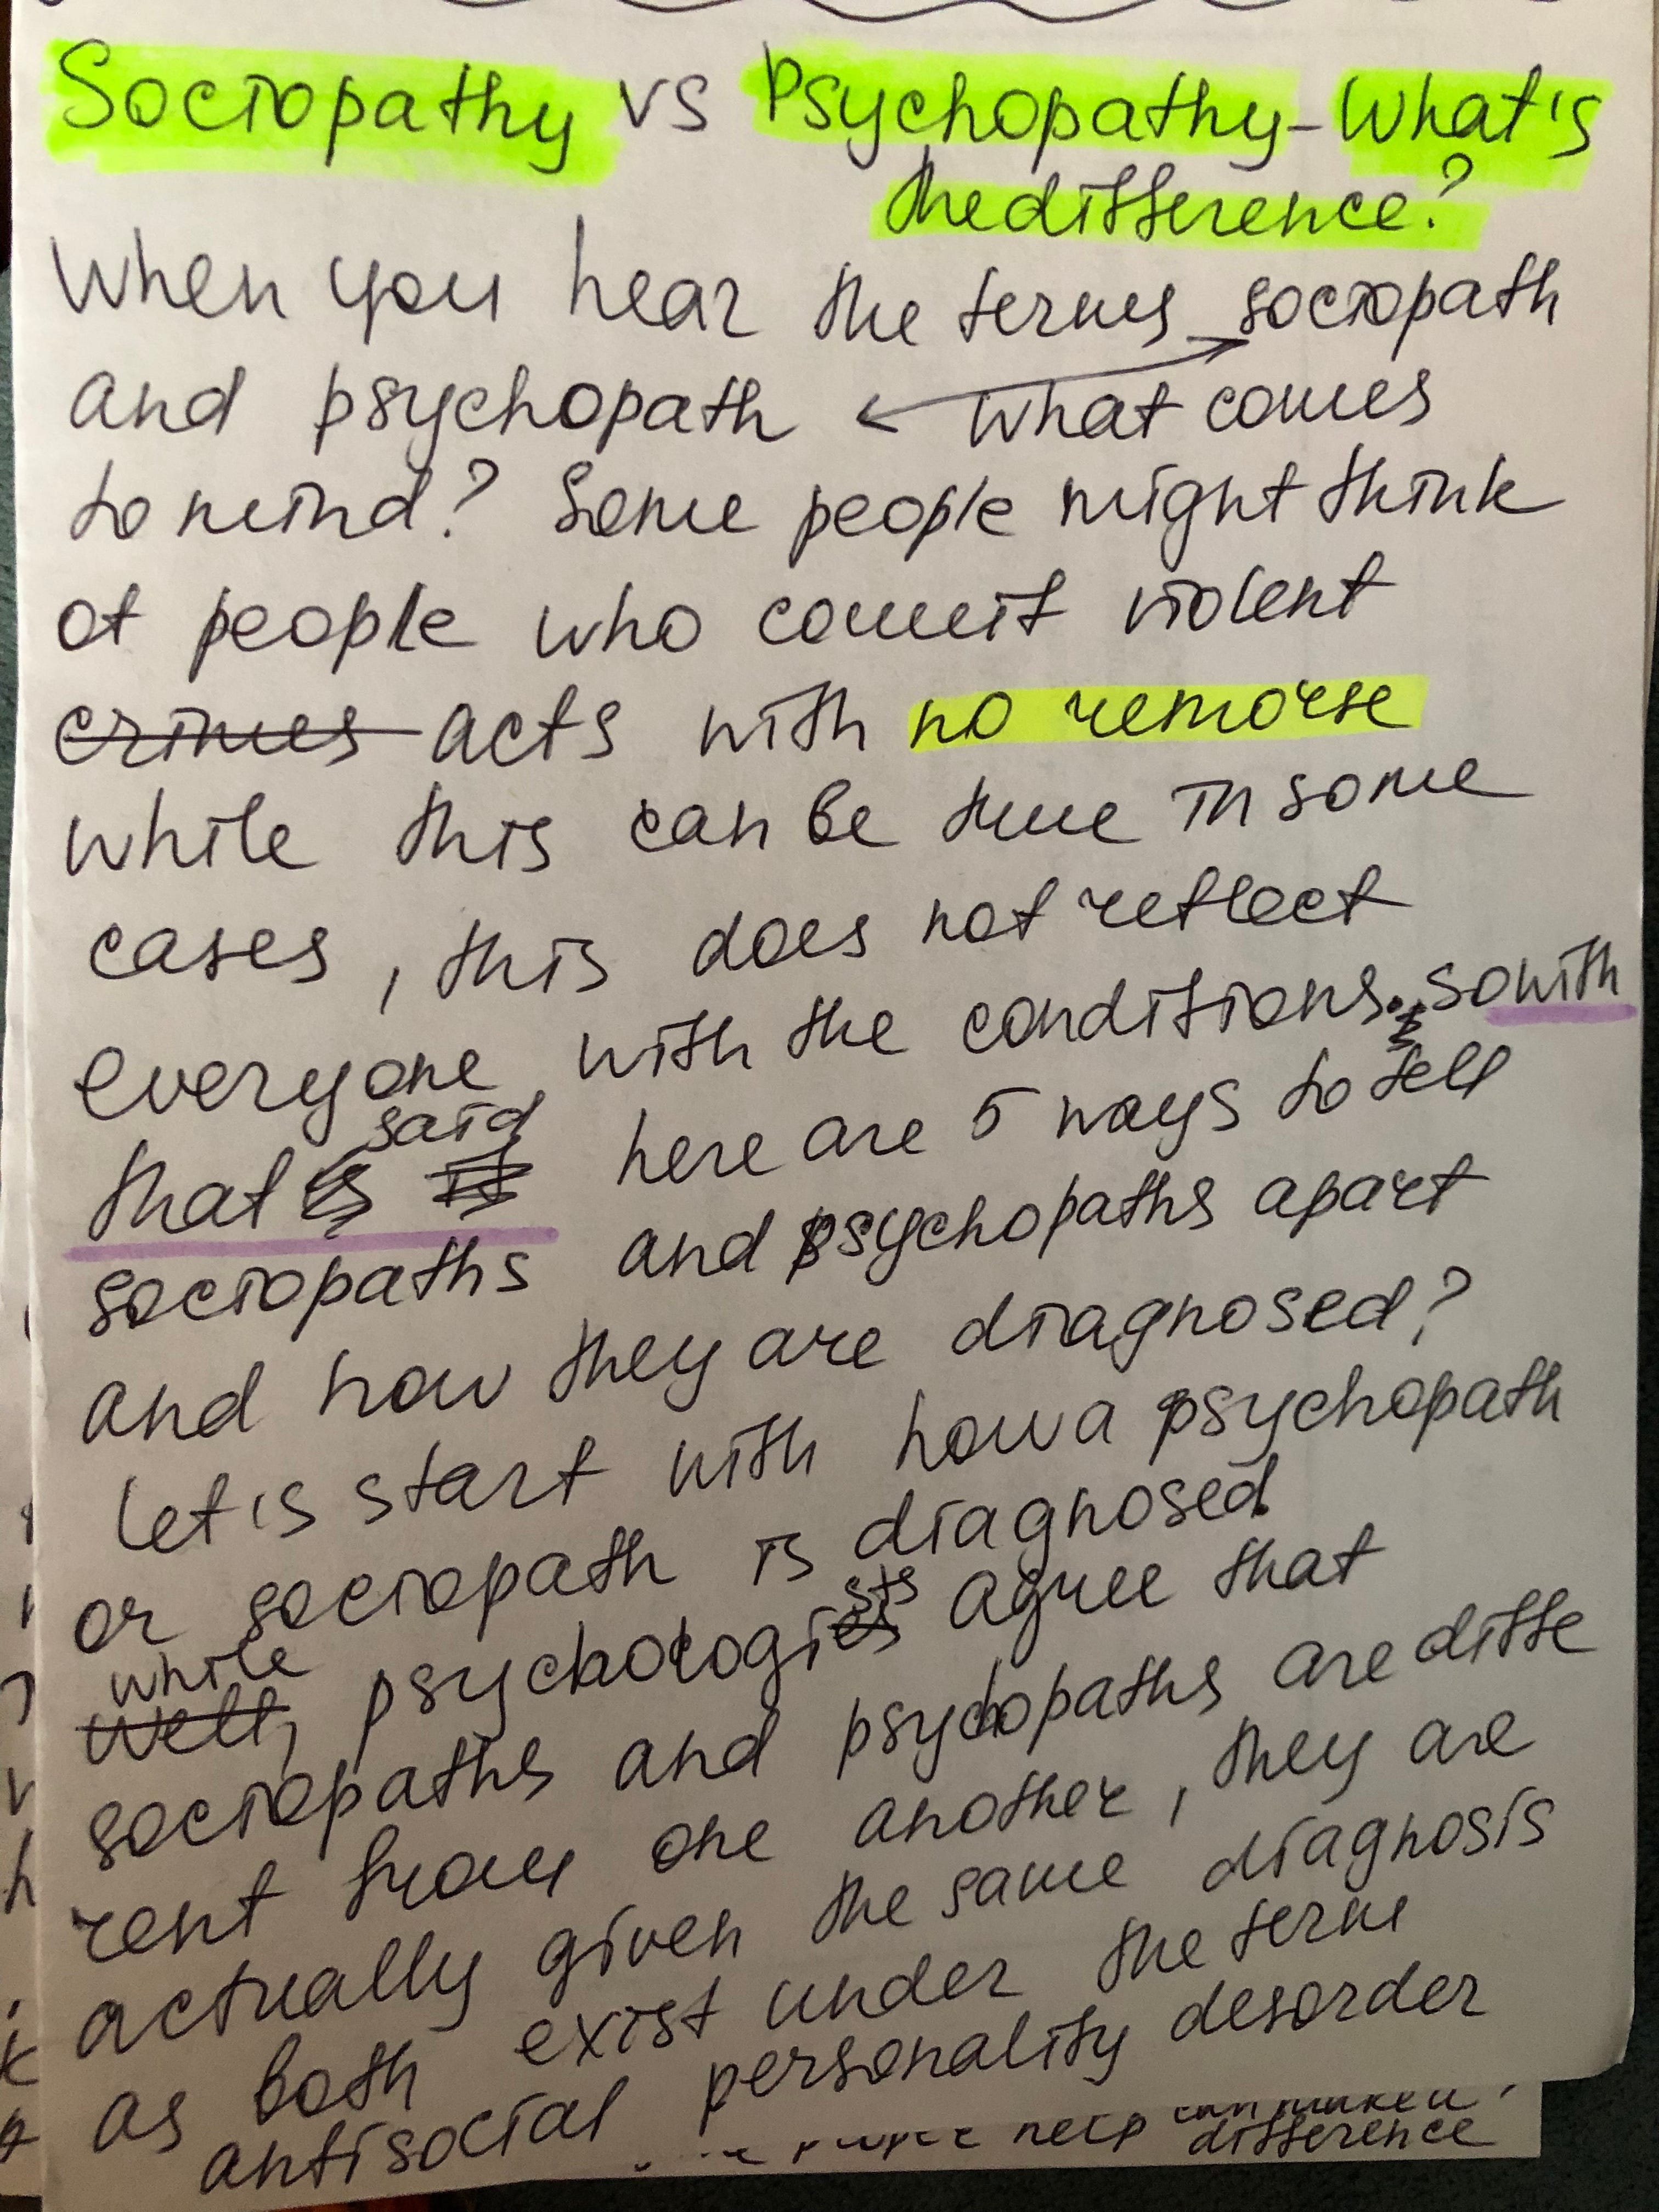 Sociopathy vs Psychopathy - What's
the difference?
When you hear the terms sociopath
and psychopath what comes
to mind? Some people might think
of people who commit violent
crimes acts with no remorse
while this can be true in some
cases, this does not reflect
everyone with the conditions. so with
that said here are 5 ways to tell
sociopaths and psychopaths apart
and how they are diagnosed?
let's start with how a psychopath
or sociopath is diagnosed.
while
well, psychologists agree that
sociopaths and psychopaths are diffe
rent from one another, they are
actually given the same diagnosis
as both exist under the term
antisocial personality desorder
help
difference